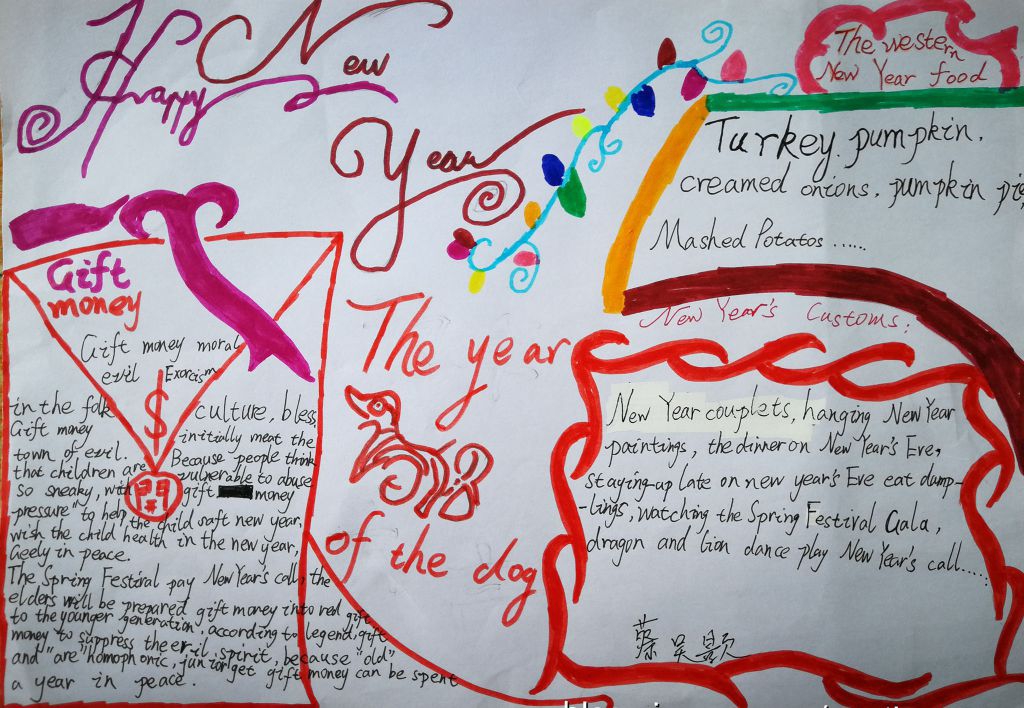 Happy New
Year
The western
New Year food
Turkey. pumpkin.
creamed onions. pumpkin pie,
Mashed Potatos ......
Gift
money
Gift money moral
evil Exorcism
in the folk culture, bless
Gift money initially meat the
town of evil. Because people think
that children are vulnerable to abuse
so sneaky, with gift money
-pressure" to help the child saft new year,
wish the child health in the new year,
Geely in peace.
The Spring Festival pay New Year's call, the
elders will be prepared gift money into red gift
to the younger generation, according to legend, gift
money to suppress the evil spirit, because "old"
and "are" homophonic, junior get gift money can be spent
a year in peace.
The year
of the dog
New Year's Customs:
New Year couplets, hanging New Year
paintings, the dinner on New Year's Eve,
staying-up late on new year's Eve eat dump-
-lings, watching the Spring Festival Gala,
dragon and lion dance play New Year's call.....
蔡昊颢